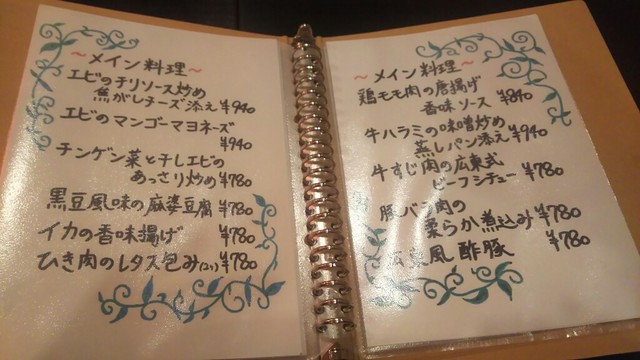 ～メイン料理～
エビのチリソース炒め
焦がしチーズ添え ¥940
エビのマンゴーマヨネーズ
¥940
チンゲン菜と干しエビの
あっさり炒め ¥780
黒豆風味の麻婆豆腐 ¥780
イカの香味揚げ ¥780
ひき肉のレタス包み(2ヶ) ¥780
～メイン料理～
鶏モモ肉の唐揚げ
香味ソース ¥840
牛ハラミの味噌炒め
蒸しパン添え ¥940
牛すじ肉の広東式
ビーフシチュー ¥780
豚バラ肉の
柔らか煮込み ¥780
広東風 酢豚 ¥780